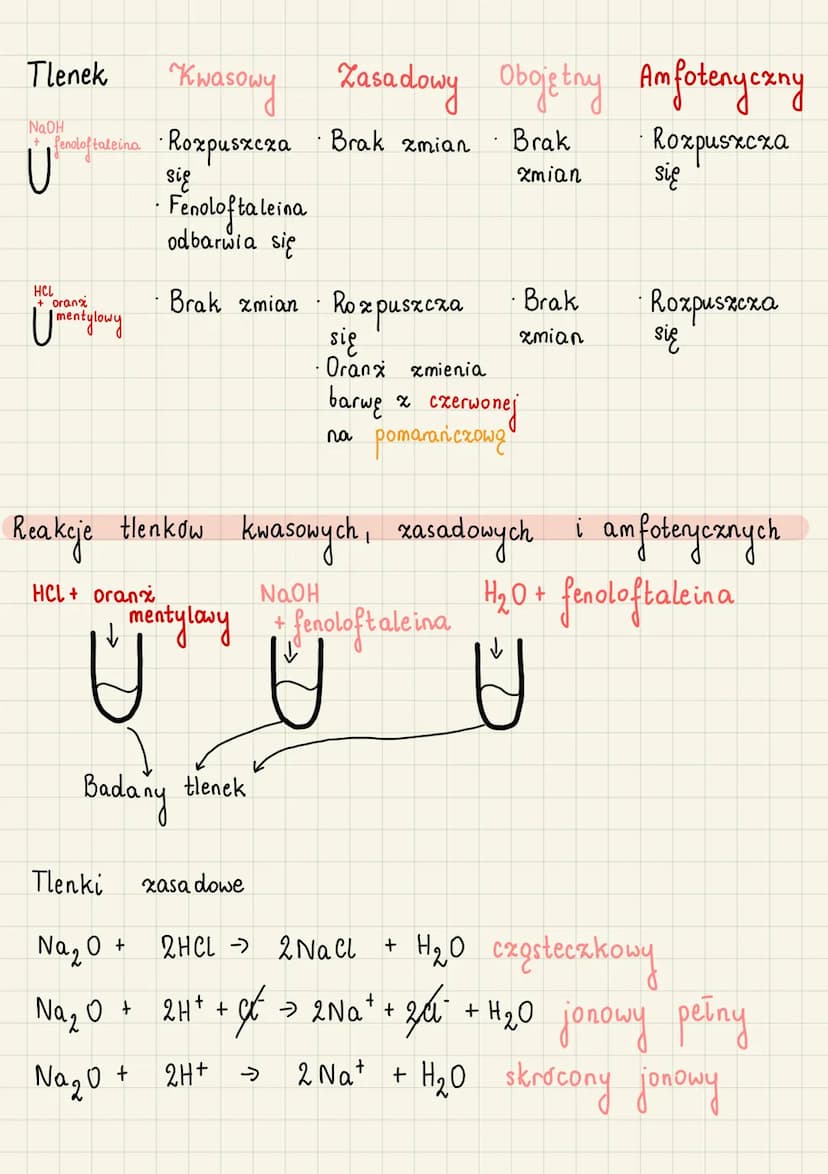 Tlenek Kwasowy Zasadowy Obojętny Amfoteryczny
NaOH
+ fenoloftaleina
· Rozpuszcza się
· Fenoloftaleina odbarwia się
· Brak zmian
· Brak zmian
· Rozpuszcza się
HCl
+ oranż
mentylowy
· Brak zmian
· Rozpuszcza się
· Oranż zmienia
barwę z czerwonej
na pomarańczową
· Brak zmian
· Rozpuszcza się
Reakcje tlenków kwasowych, zasadowych i amfoterycznych
HCl + oranż
mentylowy
NaOH
+ fenoloftaleina
H₂O + fenoloftaleina
Badany tlenek
Tlenki zasadowe
Na₂O + 2HCl → 2NaCl + H₂O cząsteczkowy
Na₂O + 2H⁺ + Cl⁻ → 2Na⁺ + 2Cl⁻ + H₂O jonowy pełny
Na₂O + 2H⁺ → 2Na⁺ + H₂O skrócony jonowy